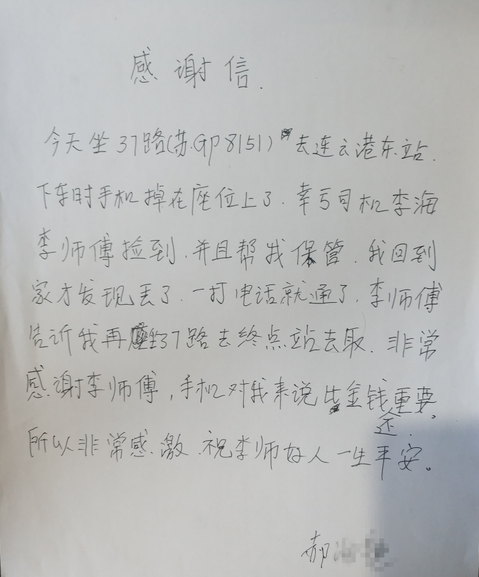 感谢信.
今天坐37路(苏.GP8151)去连云港东站.
下车时手机掉在座位上了.幸亏司机李海
李师傅捡到.并且帮我保管.我回到
家才发现丢了.一打电话就通了.李师傅
告诉我再坐37路去终点站去取.非常
感谢李师傅,手机对我来说比金钱还重要。
所以非常感.激.祝李师好人一生平安。
郝